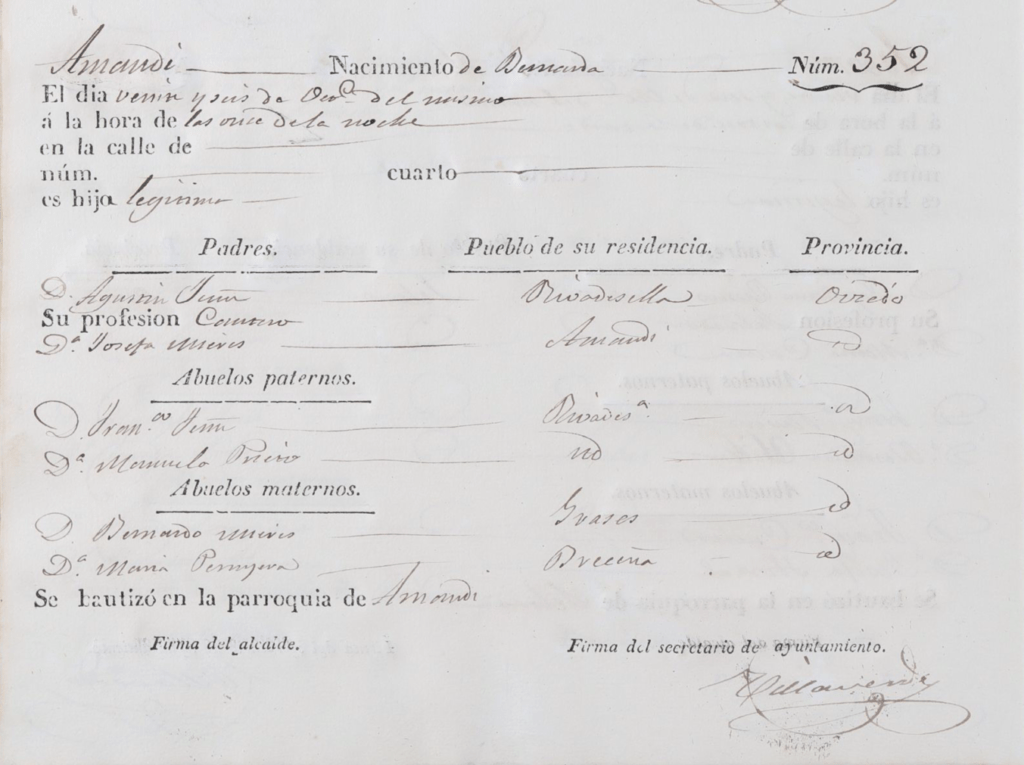 Amandi Nacimiento de Bernarda Núm. 352
El dia veinte y seis de Oct.e del mismo
á la hora de las once de la noche
en la calle de
núm. cuarto
es hija legitima
Padres. Pueblo de su residencia. Provincia.
D. Agustin Rivadesella Oviedo
Su profesion Cantero
D.ª Josefa Mieres Amandi id
Abuelos paternos.
D. Fran.co Rivades.ª id
D.ª Manuela Prieto id id
Abuelos maternos.
D. Bernardo Mieres Grases id
D.ª Maria Breceña id
Se bautizó en la parroquia de Amandi
Firma del alcalde. Firma del secretario de ayuntamiento.
Villaverde